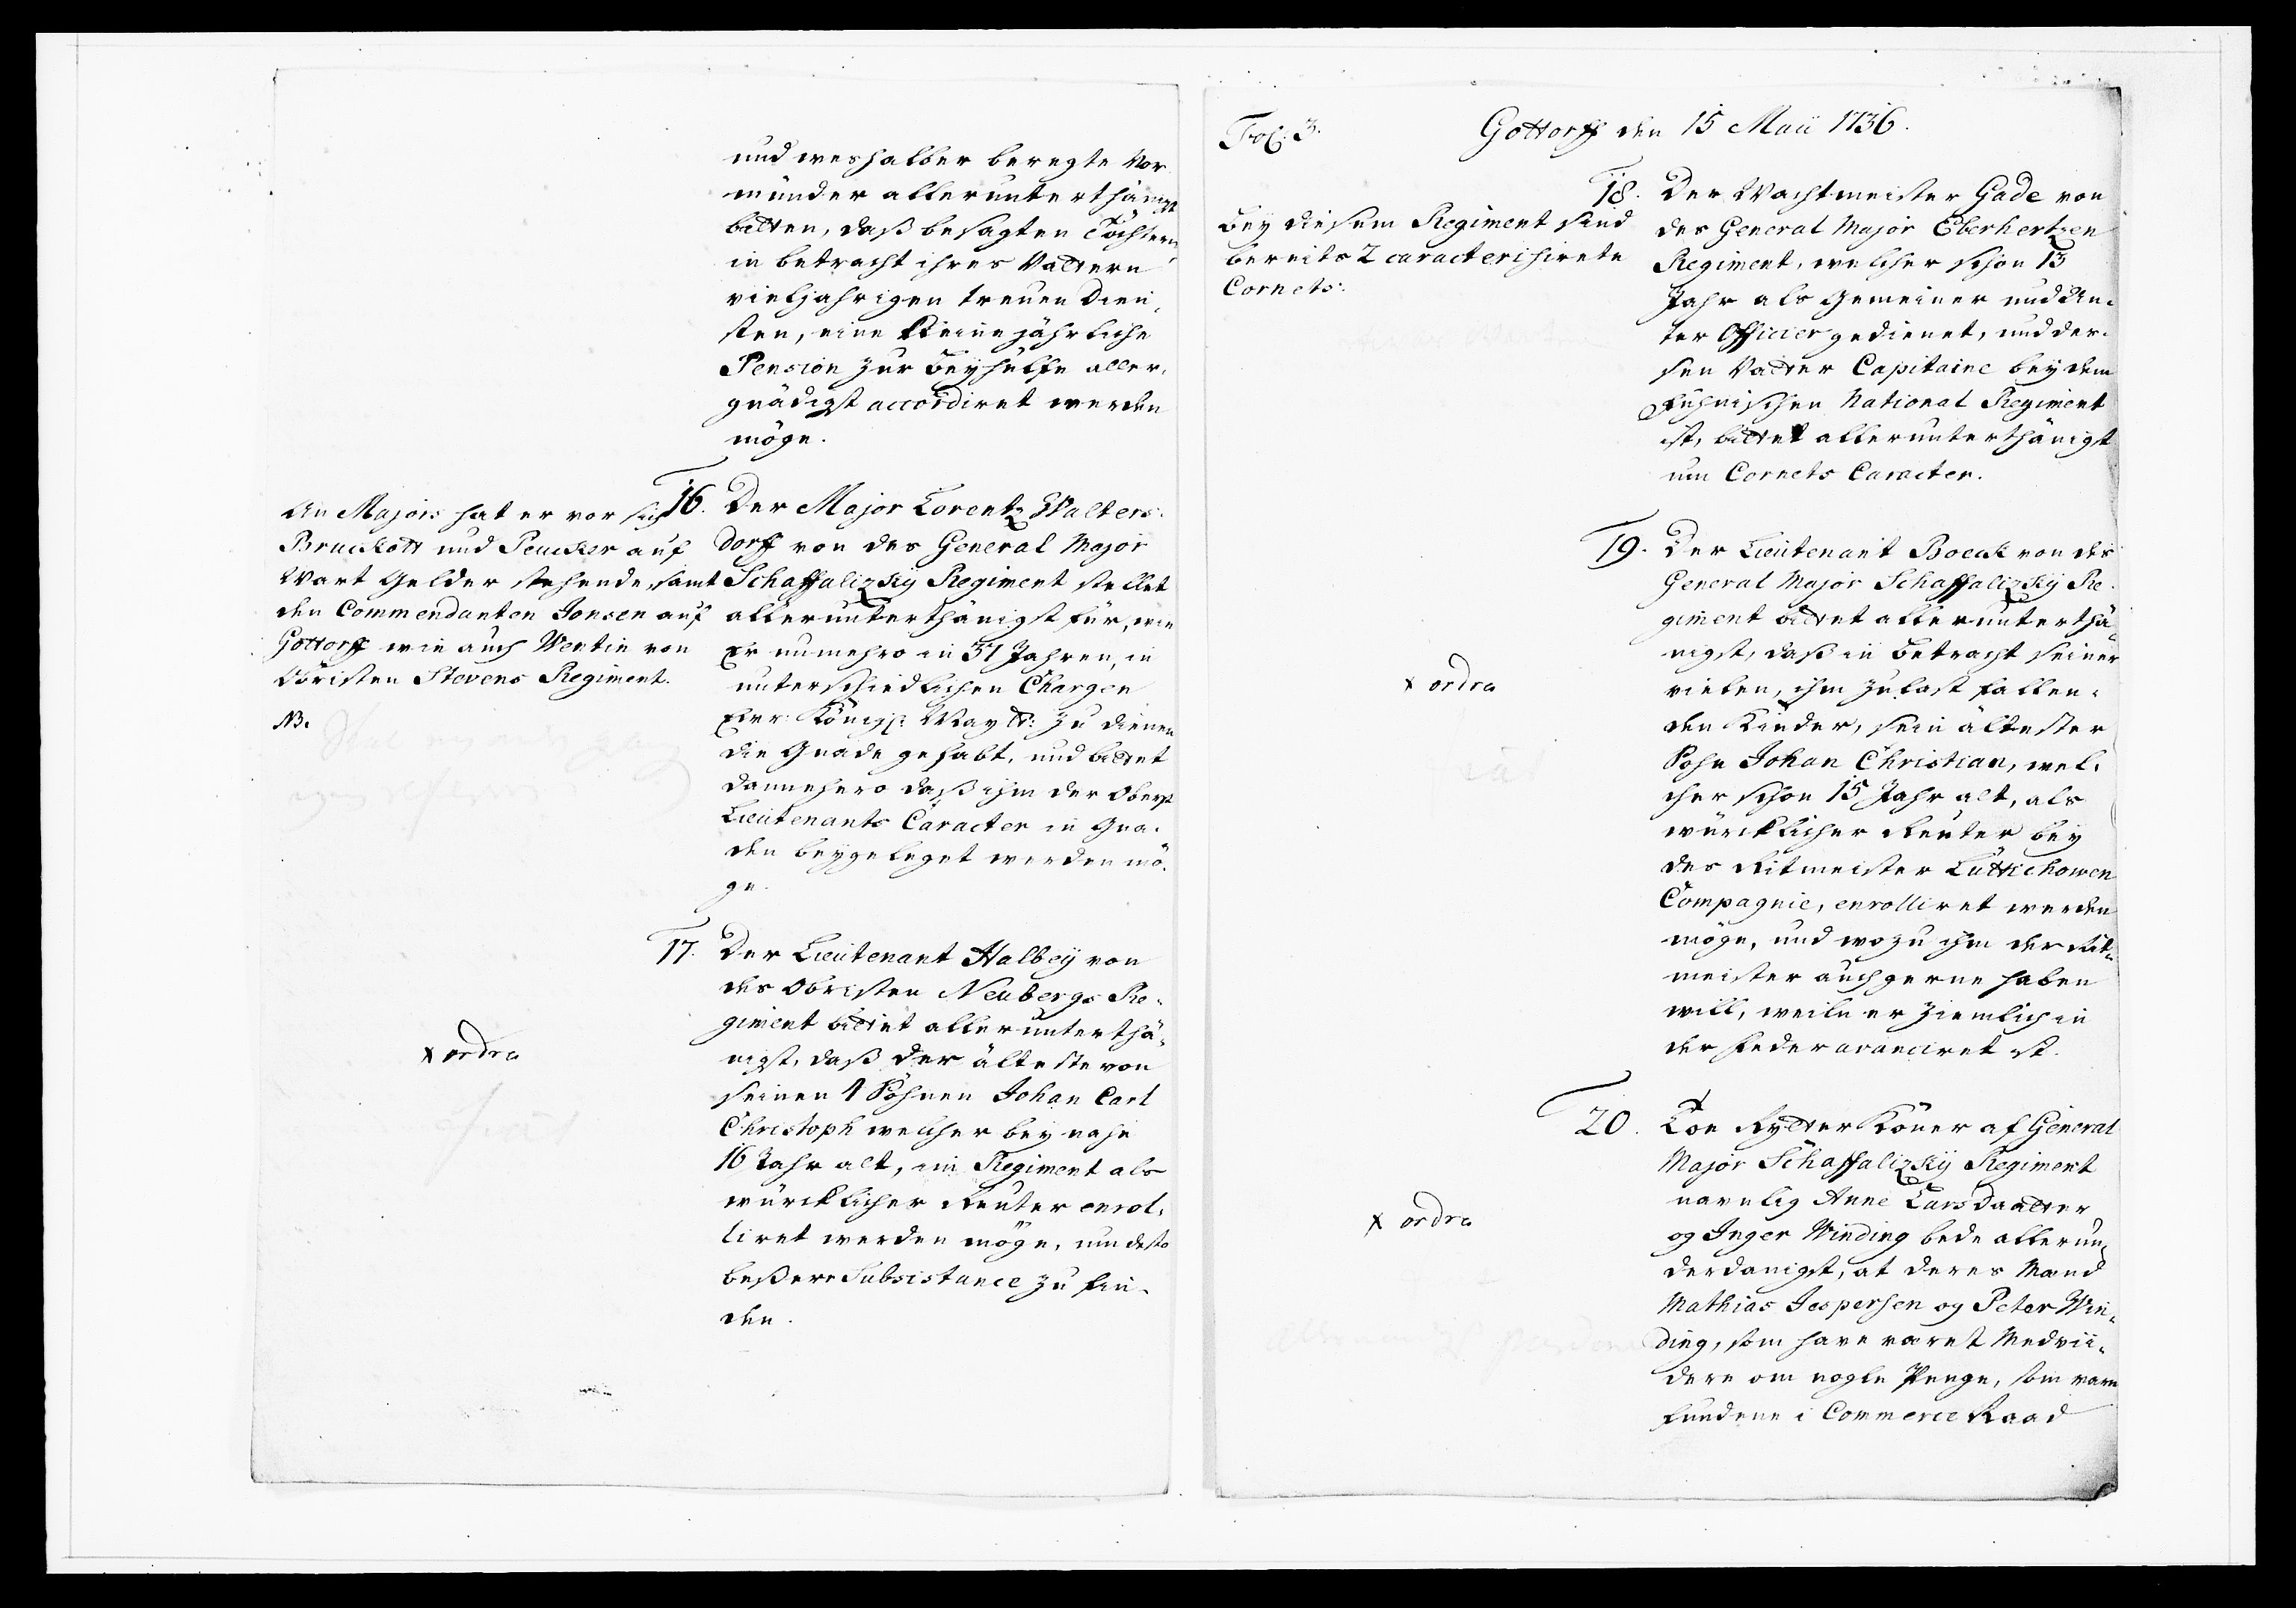 und weshalber beregte Vor
münder allerunterthänigst
bitten, daß besagten Töchtern
in betracht ihres Vatters
vieljahrigen treuen Dien,
sten, eine kleine jährliche
Pension zur Beyhülffe aller,
gnädigst accordiret werden
möge.
16. Der Major Lorentz Walters
dorff von des General Major
Schaffalizkÿ Regiment stellet
allerunterthänigst für, wie
Er nunmehro in 37 Jahren, in
unterschiedlichen Chargen
Ewr: Königl: Maytt: zu dienen
die Gnade gehabt, und bittet
dannehero daß ihm der Oberst
Lieutenants Caracter in Gna,
den beygeleget werden mö,
ge.
An Majors hat er vor sich
Bruckott und Peucker auf
Wart Gelder stehende, samt
den Commendanten Jonsen auf
Gottorff wie auch Wentin von
Obristen Stevens Regiment.
NB.
17. Der Lieutenant Halbeÿ von
des Obristen Neubergs Re,
giment bittet allerunterthä,
nigst, daß der älteste von
seinen 4 Söhnen Johan Carl
Christoph welcher bey nahe
16 Jahr alt, im Regiment als
würcklicher Reuter enrol,
liret werden möge, um desto
beßere Subsistance zu fin,
den.
x ordre
Fol: 3.
Gottorff den 15 Maii 1736.
18. Der Wachtmeister Gade von
des General Major Eberhertzen
Regiment, welcher schon 13
Jahr als Gemeiner und Un,
ter Officier gedienet, und des,
sen Vatter Capitaine bey dem
Fühnischen National Regiment
ist, bittet allerunterthänigst
um Cornets Caracter.
Bey diesem Regiment sind
bereits 2 caracterisirete
Cornets.
19. Der Lieutenant Boeck von des
General Major Schaffalizkÿ Re
giment bittet allerunterthä,
nigst, daß in Betracht seiner
vielen, ihm zu last fallen,
den Kinder, sein ältester
Sohn Johan Christian, wel,
cher schon 15 Jahr alt, als
würcklicher Reuter bey
des Ritmeister Lüttichowen
Compagnie, enrolliret werden
möge, und wozu ihm der Rit,
meister auch gerne haben
will, weiln er ziemlich in
der Feder avanciret ist.
x ordre
20. Toe Rytter Koner af General
Major Schaffalizkÿ Regiment
navnlig Anne Larsdaatter
og Inger Winding bede allerun,
derdanigst, at deres Mand
Mathias Jespersen og Peter Win,
ding, som have varet Medvii,
dere om nogle Penge, som vare
fundene i Commerce Raad
x ordre